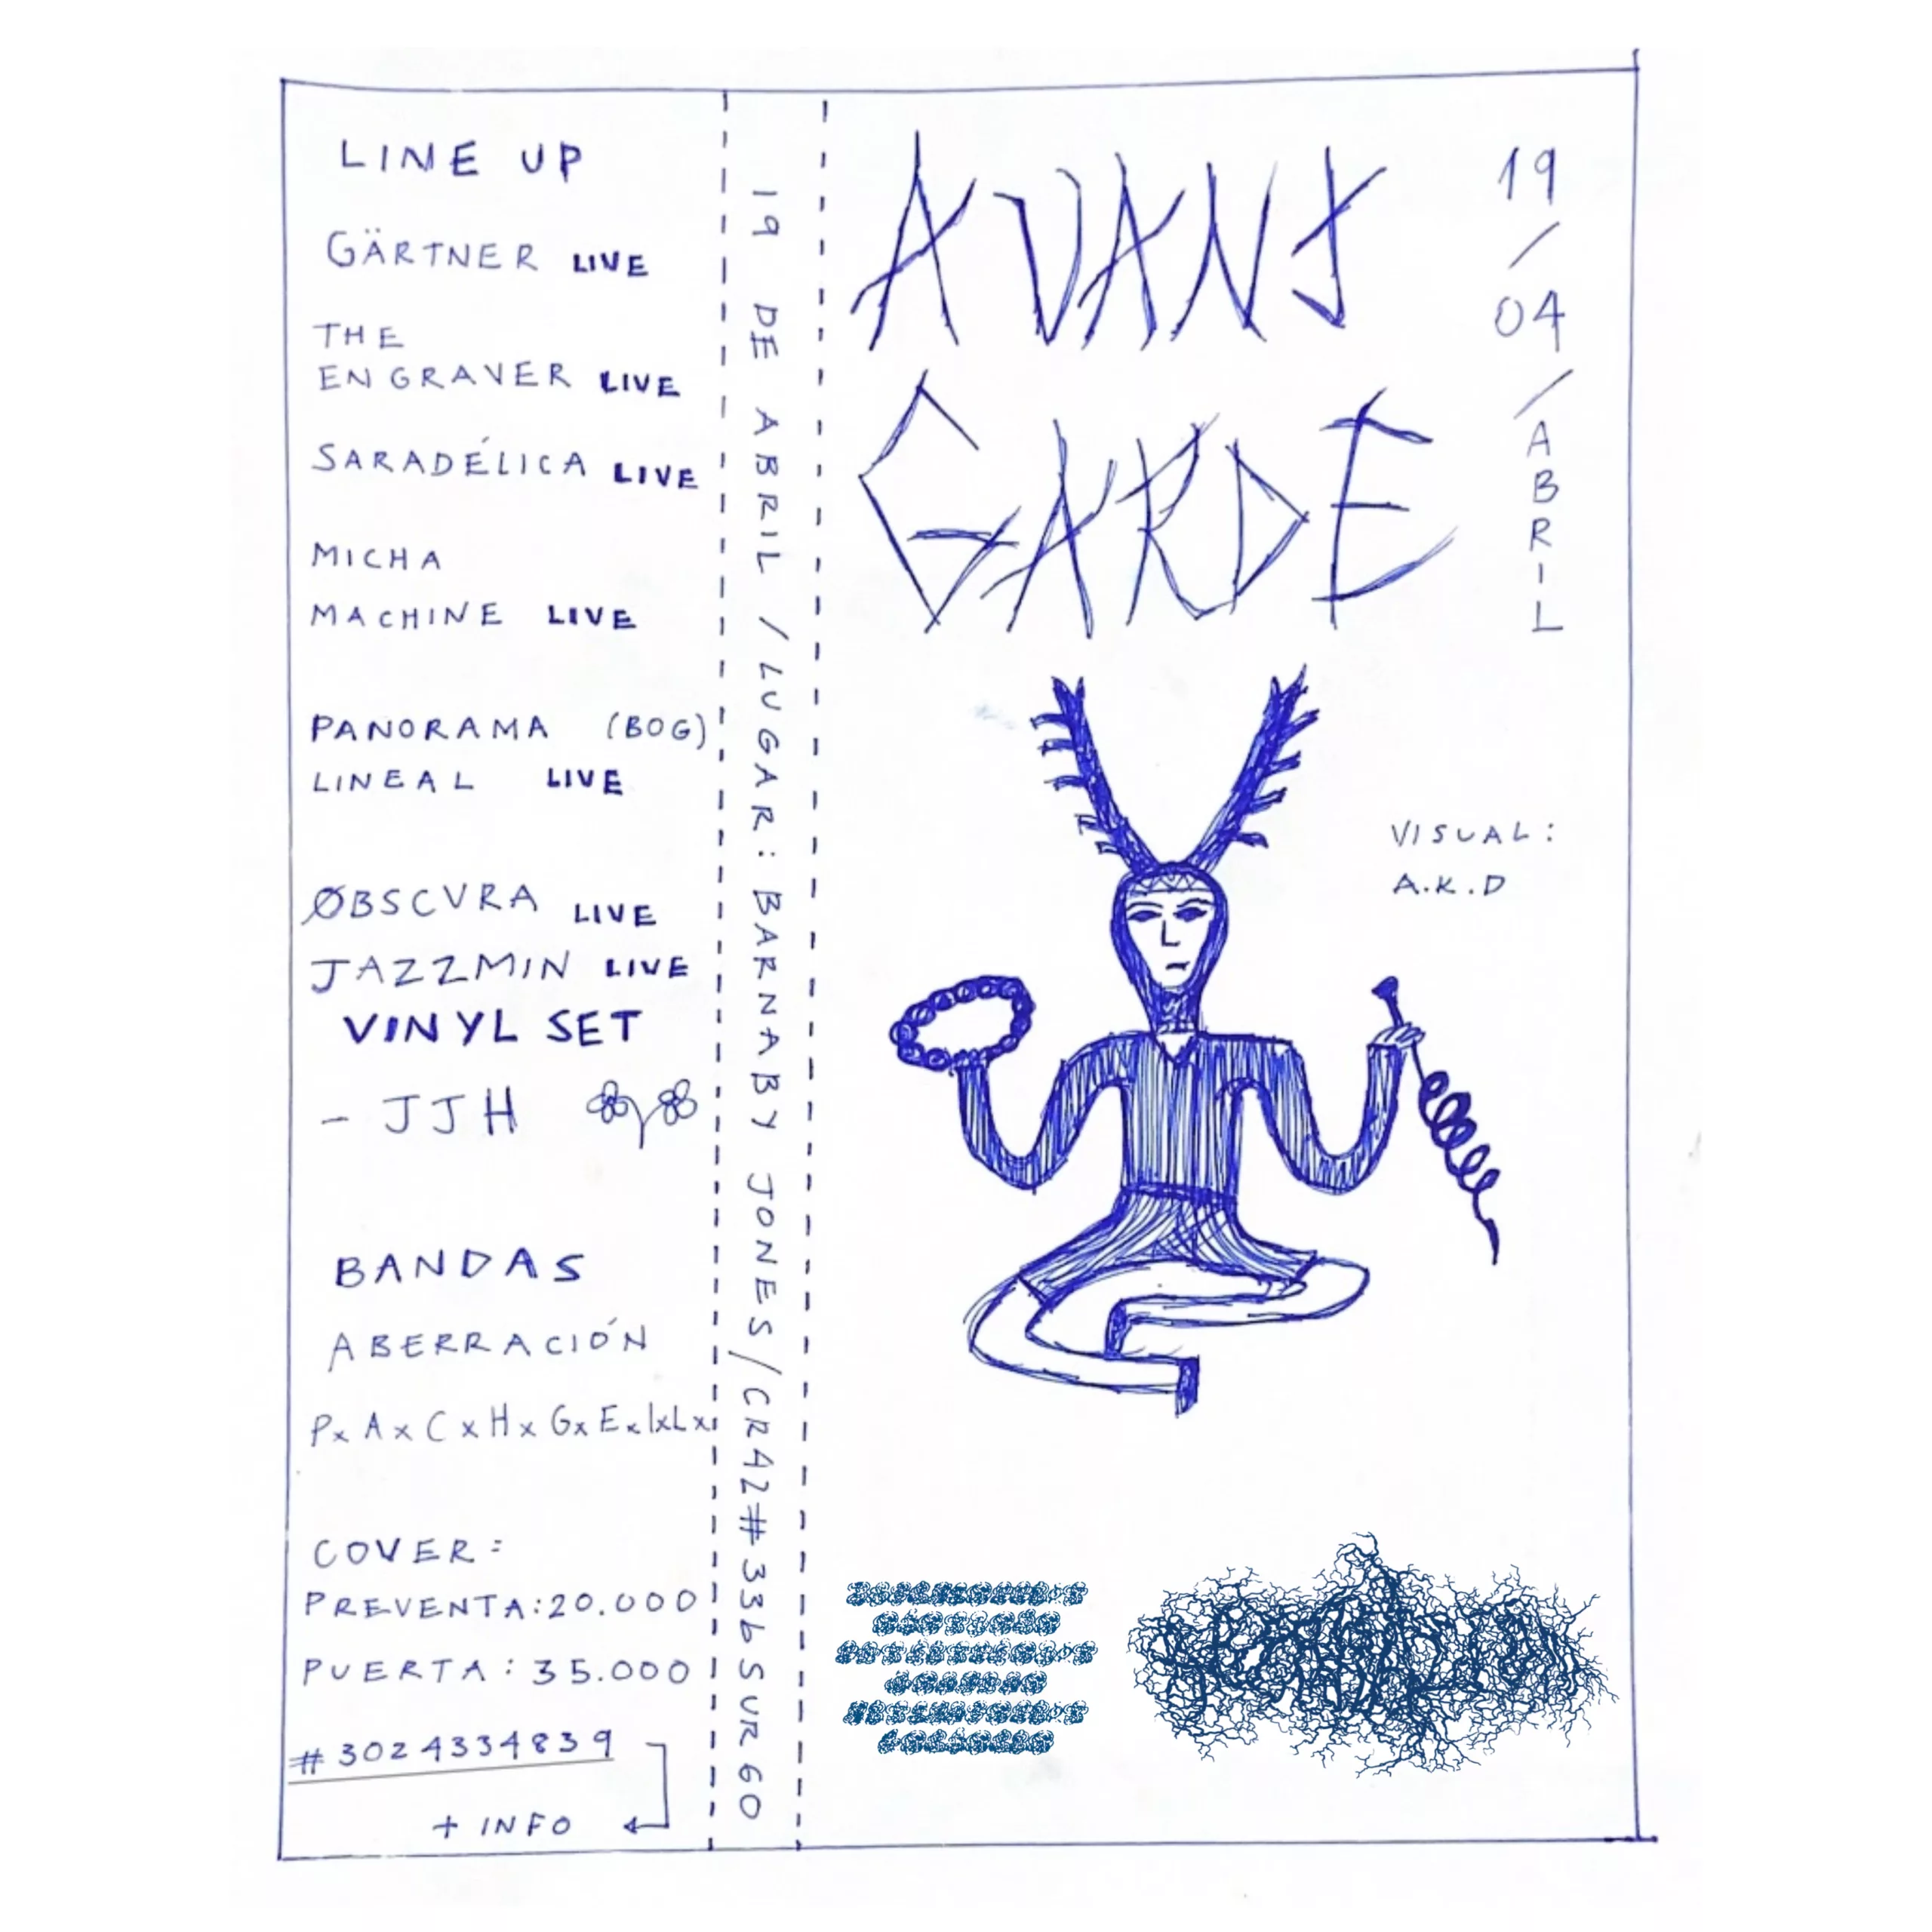 LINE UP
GÄRTNER LIVE
THE
ENGRAVER LIVE
SARADÉLICA LIVE
MICHA
MACHINE LIVE
PANORAMA (BOG)
LINEAL LIVE
ØBSCVRA LIVE
JAZZMIN LIVE
VINYL SET
- JJH
BANDAS
ABERRACIÓN
PxAxCxHxGxExIxLx
COVER:
PREVENTA: 20.000
PUERTA: 35.000
#3024334839
+ INFO
19 DE ABRIL / LUGAR: BARNABY JONES / CR42#33b SUR 60
AVANT
GARDE
19
/
04
/
ABRIL
VISUAL:
A.K.D